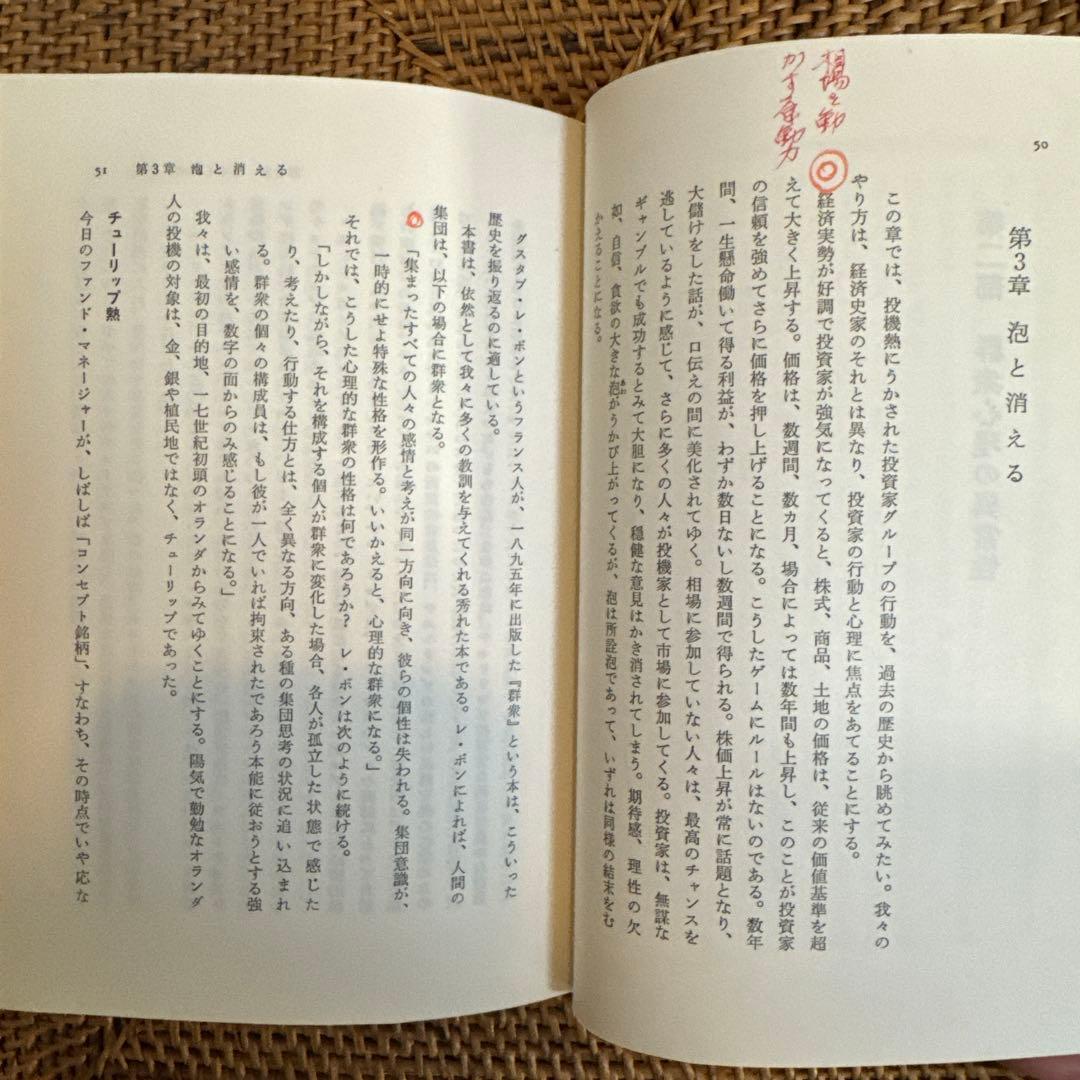 相場を動
かす原動力
50
第3章 泡と消える
この章では、投機熱にうかされた投資家グループの行動を、過去の歴史から眺めてみたい。我々の
やり方は、経済史家のそれとは異なり、投資家の行動と心理に焦点をあてることにする。
経済実勢が好調で投資家が強気になってくると、株式、商品、土地の価格は、従来の価値基準を超
えて大きく上昇する。価格は、数週間、数ヵ月、場合によっては数年間も上昇し、このことが投資家
の信頼を強めてさらに価格を押し上げることになる。こうしたゲームにルールはないのである。数年
間、一生懸命働いて得る利益が、わずか数日ないし数週間で得られる。株価上昇が常に話題となり、
大儲けをした話が、口伝えの間に美化されてゆく。相場に参加していない人々は、最高のチャンスを
逃しているように感じて、さらに多くの人々が投機家として市場に参加してくる。投資家は、無謀な
ギャンブルでも成功するとみて大胆になり、穏健な意見はかき消されてしまう。期待感、理性の欠
如、自信、貪欲の大きな泡があわうかび上がってくるが、泡は所詮泡であって、いずれは同様の結末をむ
かえることになる。
51 第3章 泡と消える
グスタブ・レ・ボンというフランス人が、一八九五年に出版した『群衆』という本は、こういった
歴史を振り返るのに適している。
本書は、依然として我々に多くの教訓を与えてくれる秀れた本である。レ・ボンによれば、人間の
集団は、以下の場合に群衆となる。
「集まったすべての人々の感情と考えが同一方向に向き、彼らの個性は失われる。集団意識が、
一時的にせよ特殊な性格を形作る。いいかえると、心理的な群衆になる。」
それでは、こうした心理的な群衆の性格は何であろうか? レ・ボンは次のように続ける。
「しかしながら、それを構成する個人が群衆に変化した場合、各人が孤立した状態で感じた
り、考えたり、行動する仕方とは、全く異なる方向、ある種の集団思考の状況に追い込まれ
る。群衆の個々の構成員は、もし彼が一人でいれば拘束されたであろう本能に従おうとする強
い感情を、数字の面からのみ感じることになる。」
我々は、最初の目的地、一七世紀初頭のオランダからみてゆくことにする。陽気で勤勉なオランダ
人の投機の対象は、金、銀や植民地ではなく、チューリップであった。
チューリップ熱
今日のファンド・マネージャーが、しばしば「コンセプト銘柄」、すなわち、その時点でいや応な